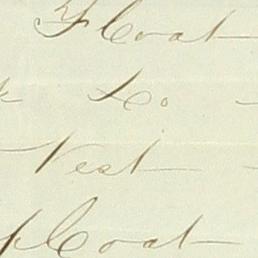 Coat
Do
Vest
Coat